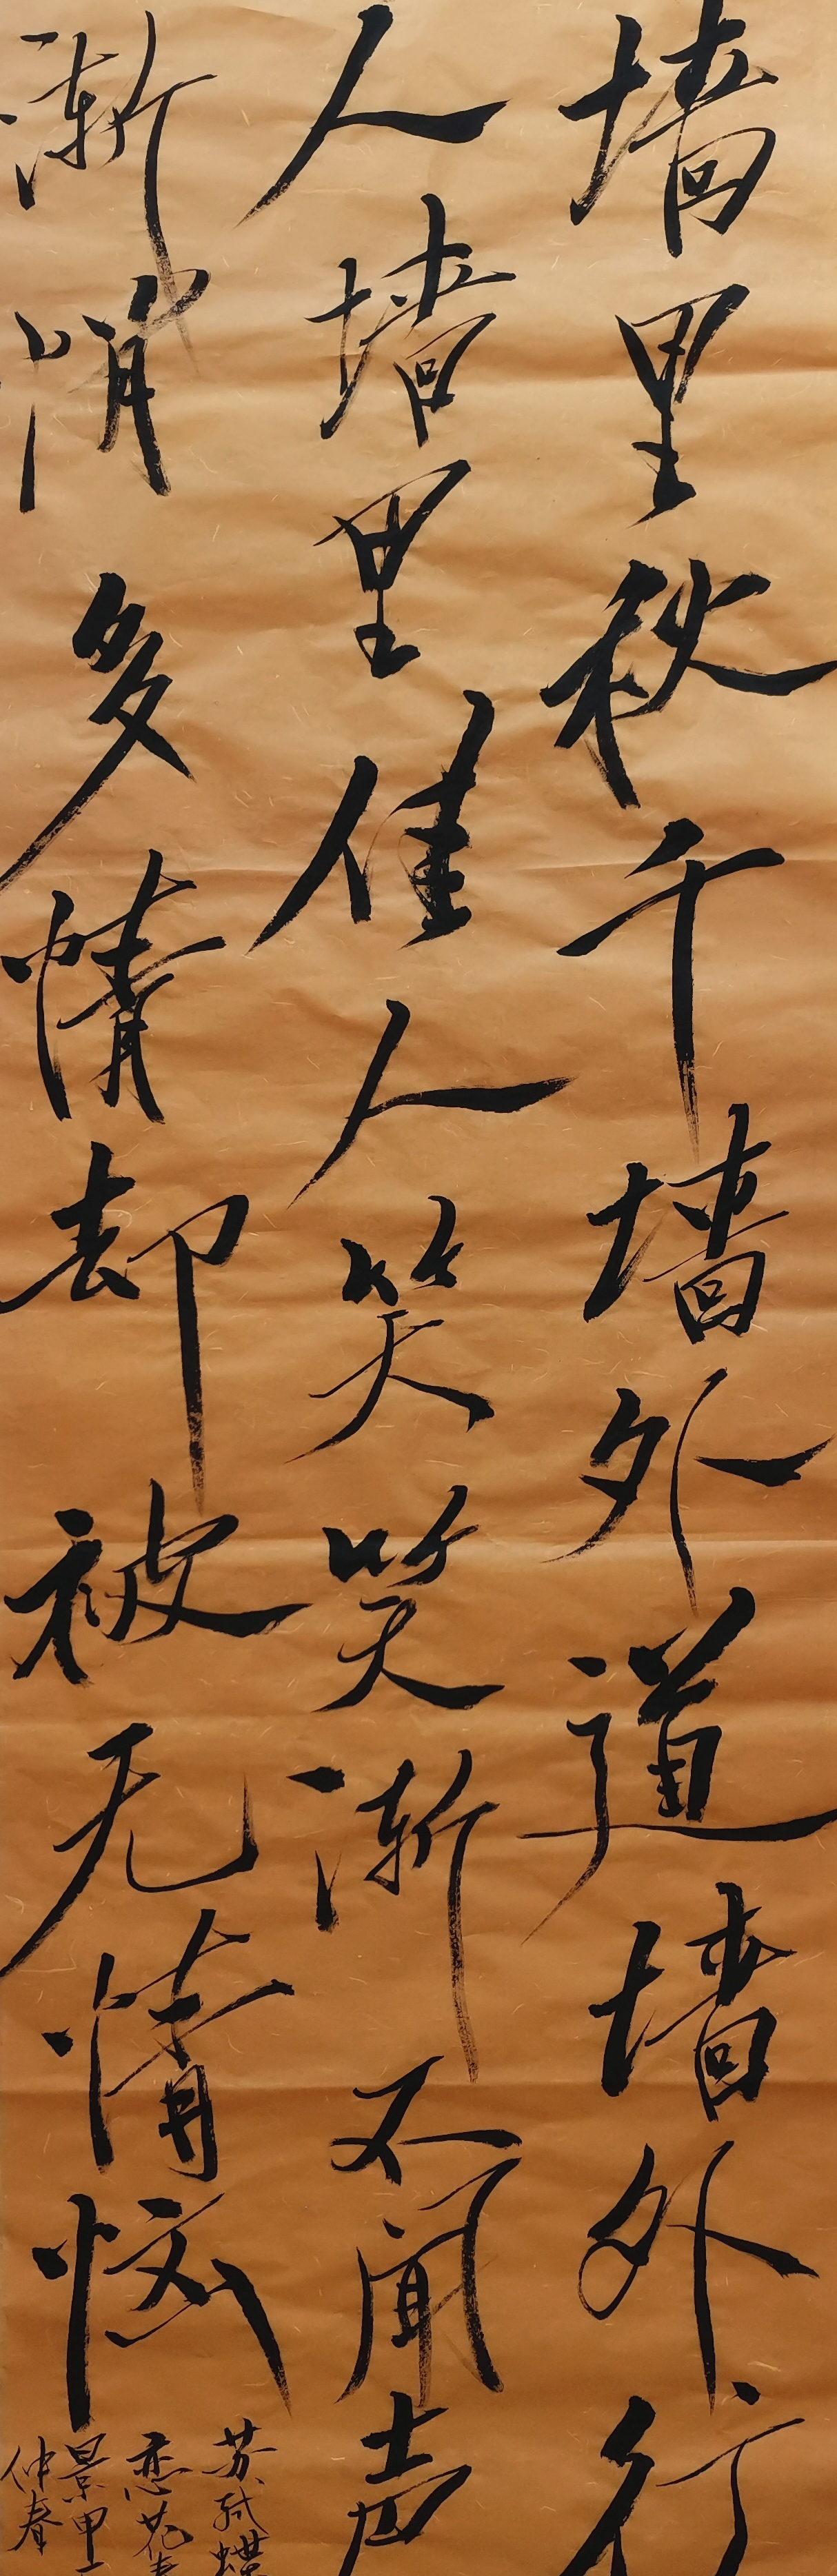 墙里秋千墙外道墙外行
人墙里佳人笑笑渐不闻声
渐悄多情却被无情恼
苏轼蝶
恋花春
景甲
仲春